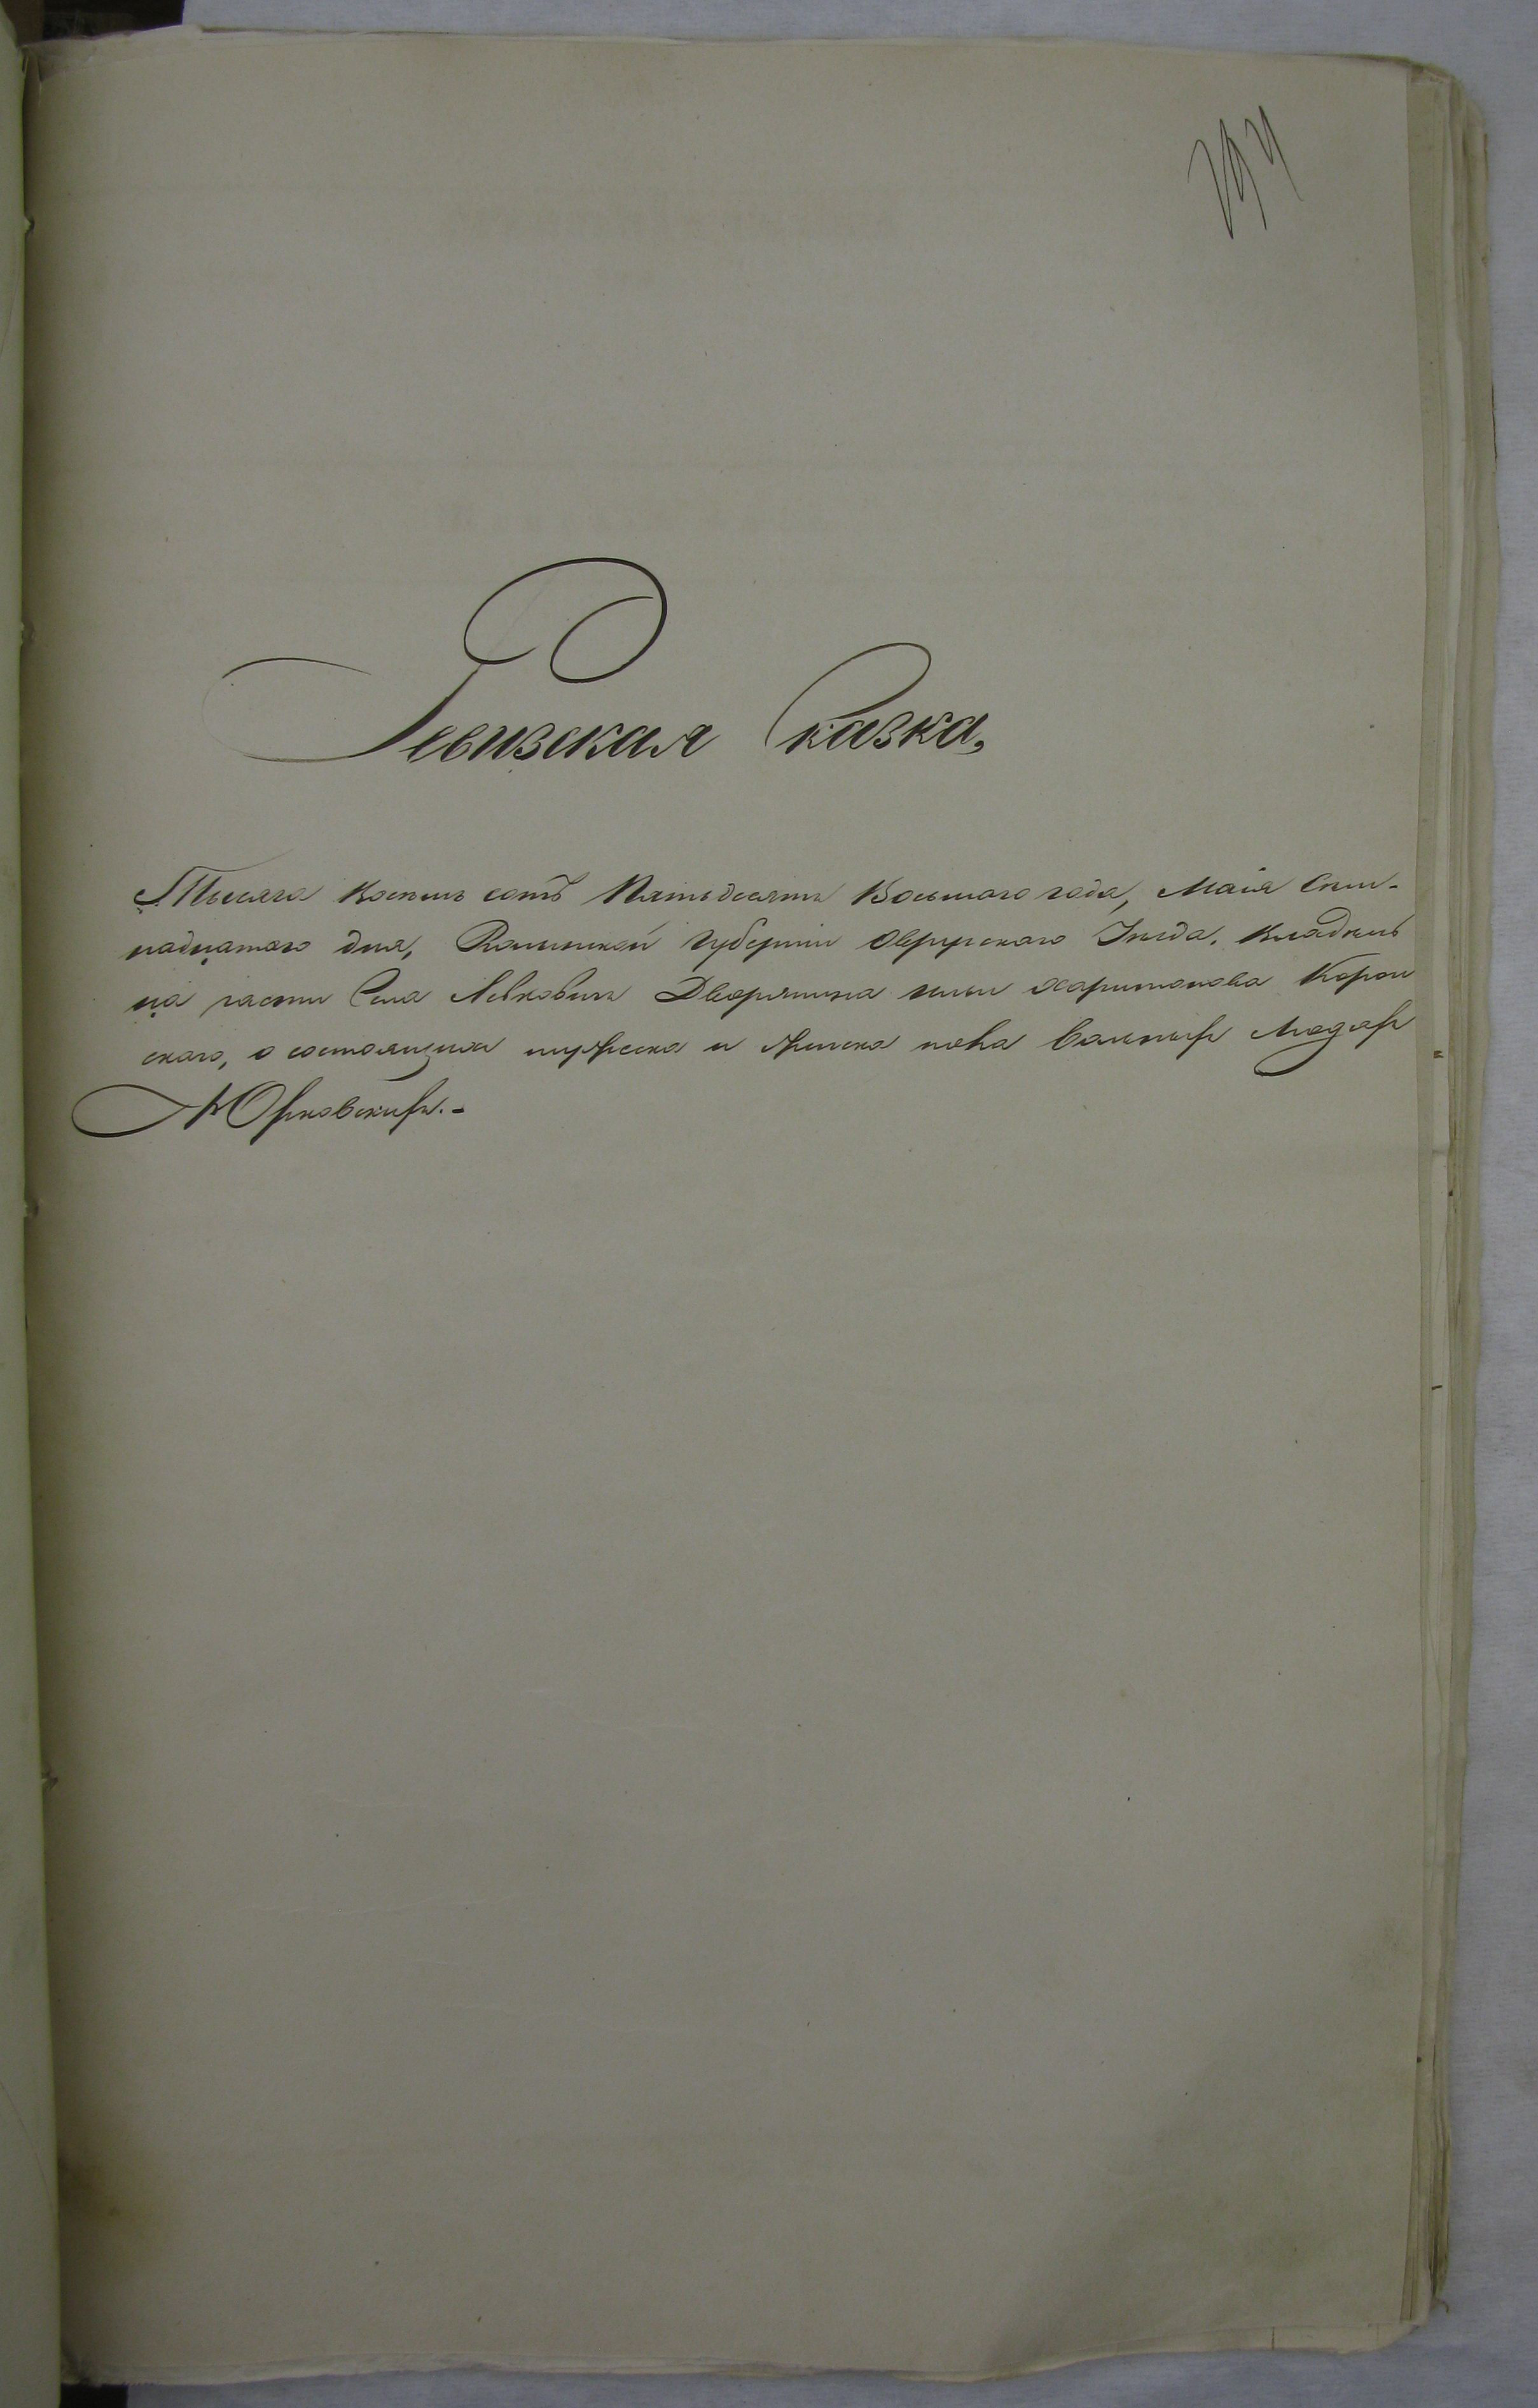 194
Ревизская Сказка,
Тысяча восемь сотъ Пятьдесятъ Восьмаго года, Маія Сем-
надцатаго дня, Волынской Губерніи Овручскаго Уезда. Владель
ца части Села Левковичъ Дворянина Харитонова
скаго, о состоящихъ мужеска и женска пола вольныхъ Людяхъ
Юрковскихъ.-